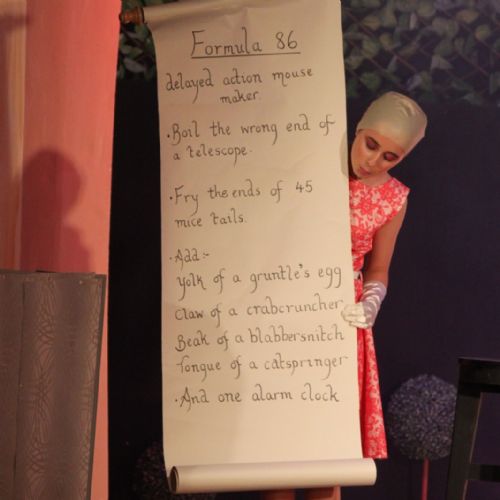 Formula 86
delayed action mouse
maker.
• Boil the wrong end of
a telescope.
• Fry the ends of 45
mice tails.
• Add:-
Yolk of a gruntle's egg
Claw of a crabcruncher
Beak of a blabbersnitch
Tongue of a catspringer
• And one alarm clock